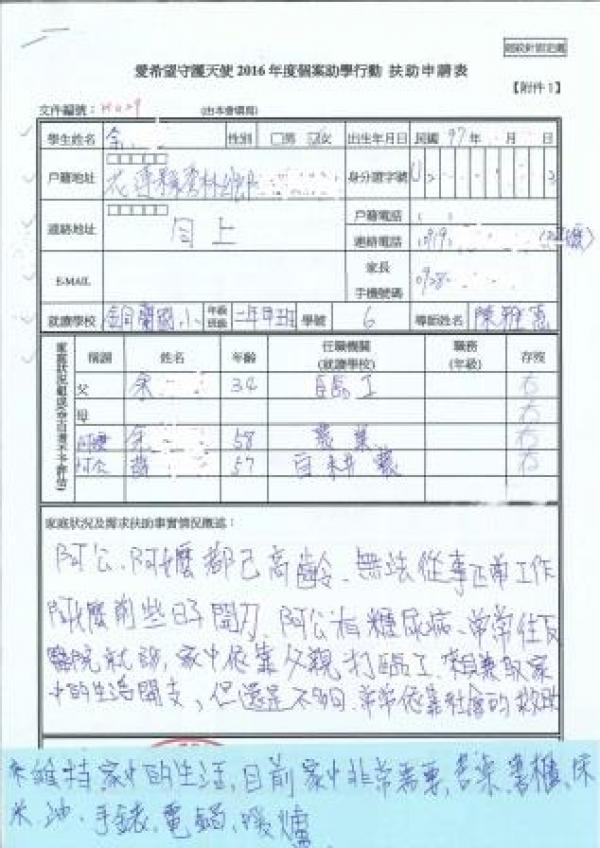 愛希望守護天使 2016 年度個案助學行動 扶助申請表
【附件 1】
文件編號： H029 (由本會填寫)
學生姓名 余 性別 □男 ☑女 出生年月日 民國 97 年 月 日
戶籍地址 花蓮縣秀林鄉 身分證字號 U
連絡地址 同上 戶籍電話 ( )
連絡電話 (0919)
E-MAIL 家長手機號碼 0928
就讀學校 銅蘭國小 年級班級 二年甲班 學號 6 導師姓名 陳雅惠
家庭狀況組成(空白者不予評估)
稱謂 姓名 年齡 任職機關(就讀學校) 職務(年級) 存歿
父 余 34 臨工 存
母 存
阿嬤 余 58 農業 存
阿公 57 自耕農 存
家庭狀況及需求扶助事實情況概述：
阿公、阿嬤都已高齡、無法從事正常工作
阿嬤前些日子開刀、阿公有糖尿病、常常住
醫院就診，家中依靠父親打臨工，來賺取家
中的生活開支，但還是不夠、常常依靠社會的救助
來維持家中的生活，目前家中非常需要，書桌、書櫃、床
米、油、手錶、電鍋、暖爐